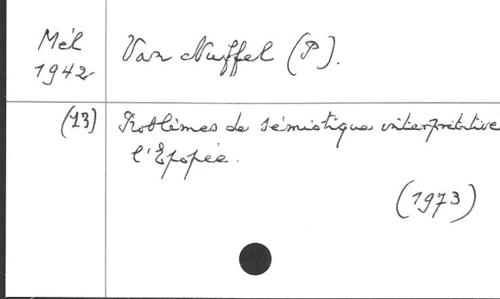 Mél
1942
Van Nuffel (P).
(13)
Problèmes de sémiotique interprétative
l'Epopée.
(1973)